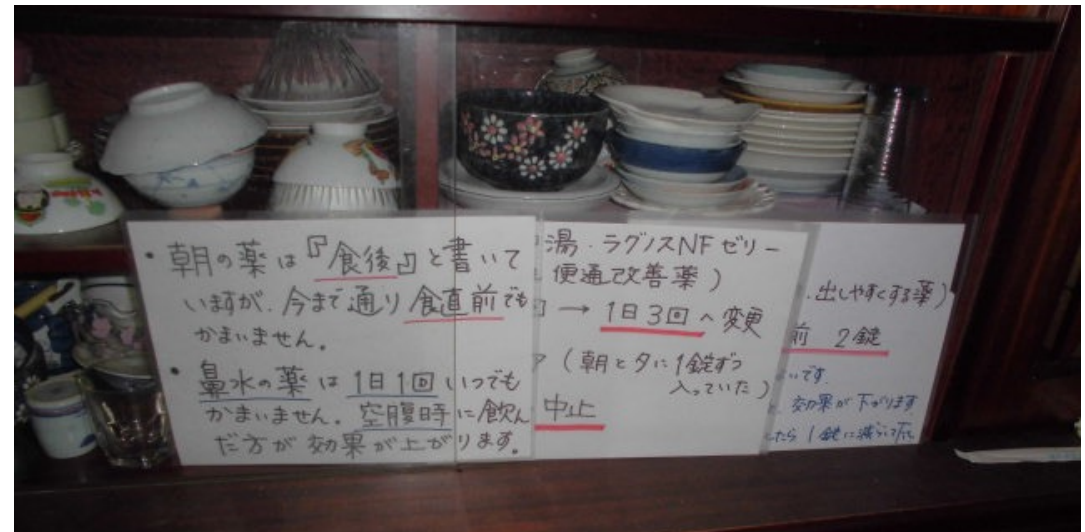 ・朝の薬は『食後』と書いて
いますが、今まで通り食直前でも
かまいません。
・鼻水の薬は1日1回いつでも
かまいません。空腹時に飲ん
だ方が効果が上がります。
湯・ラグノスNFゼリー
便通改善薬)
→ 1日3回へ変更
(朝と夕に1錠ずつ
入っていた)
中止
出しやすくする薬)
前 2錠
です。
効果が下がります
たら1錠に減らして下